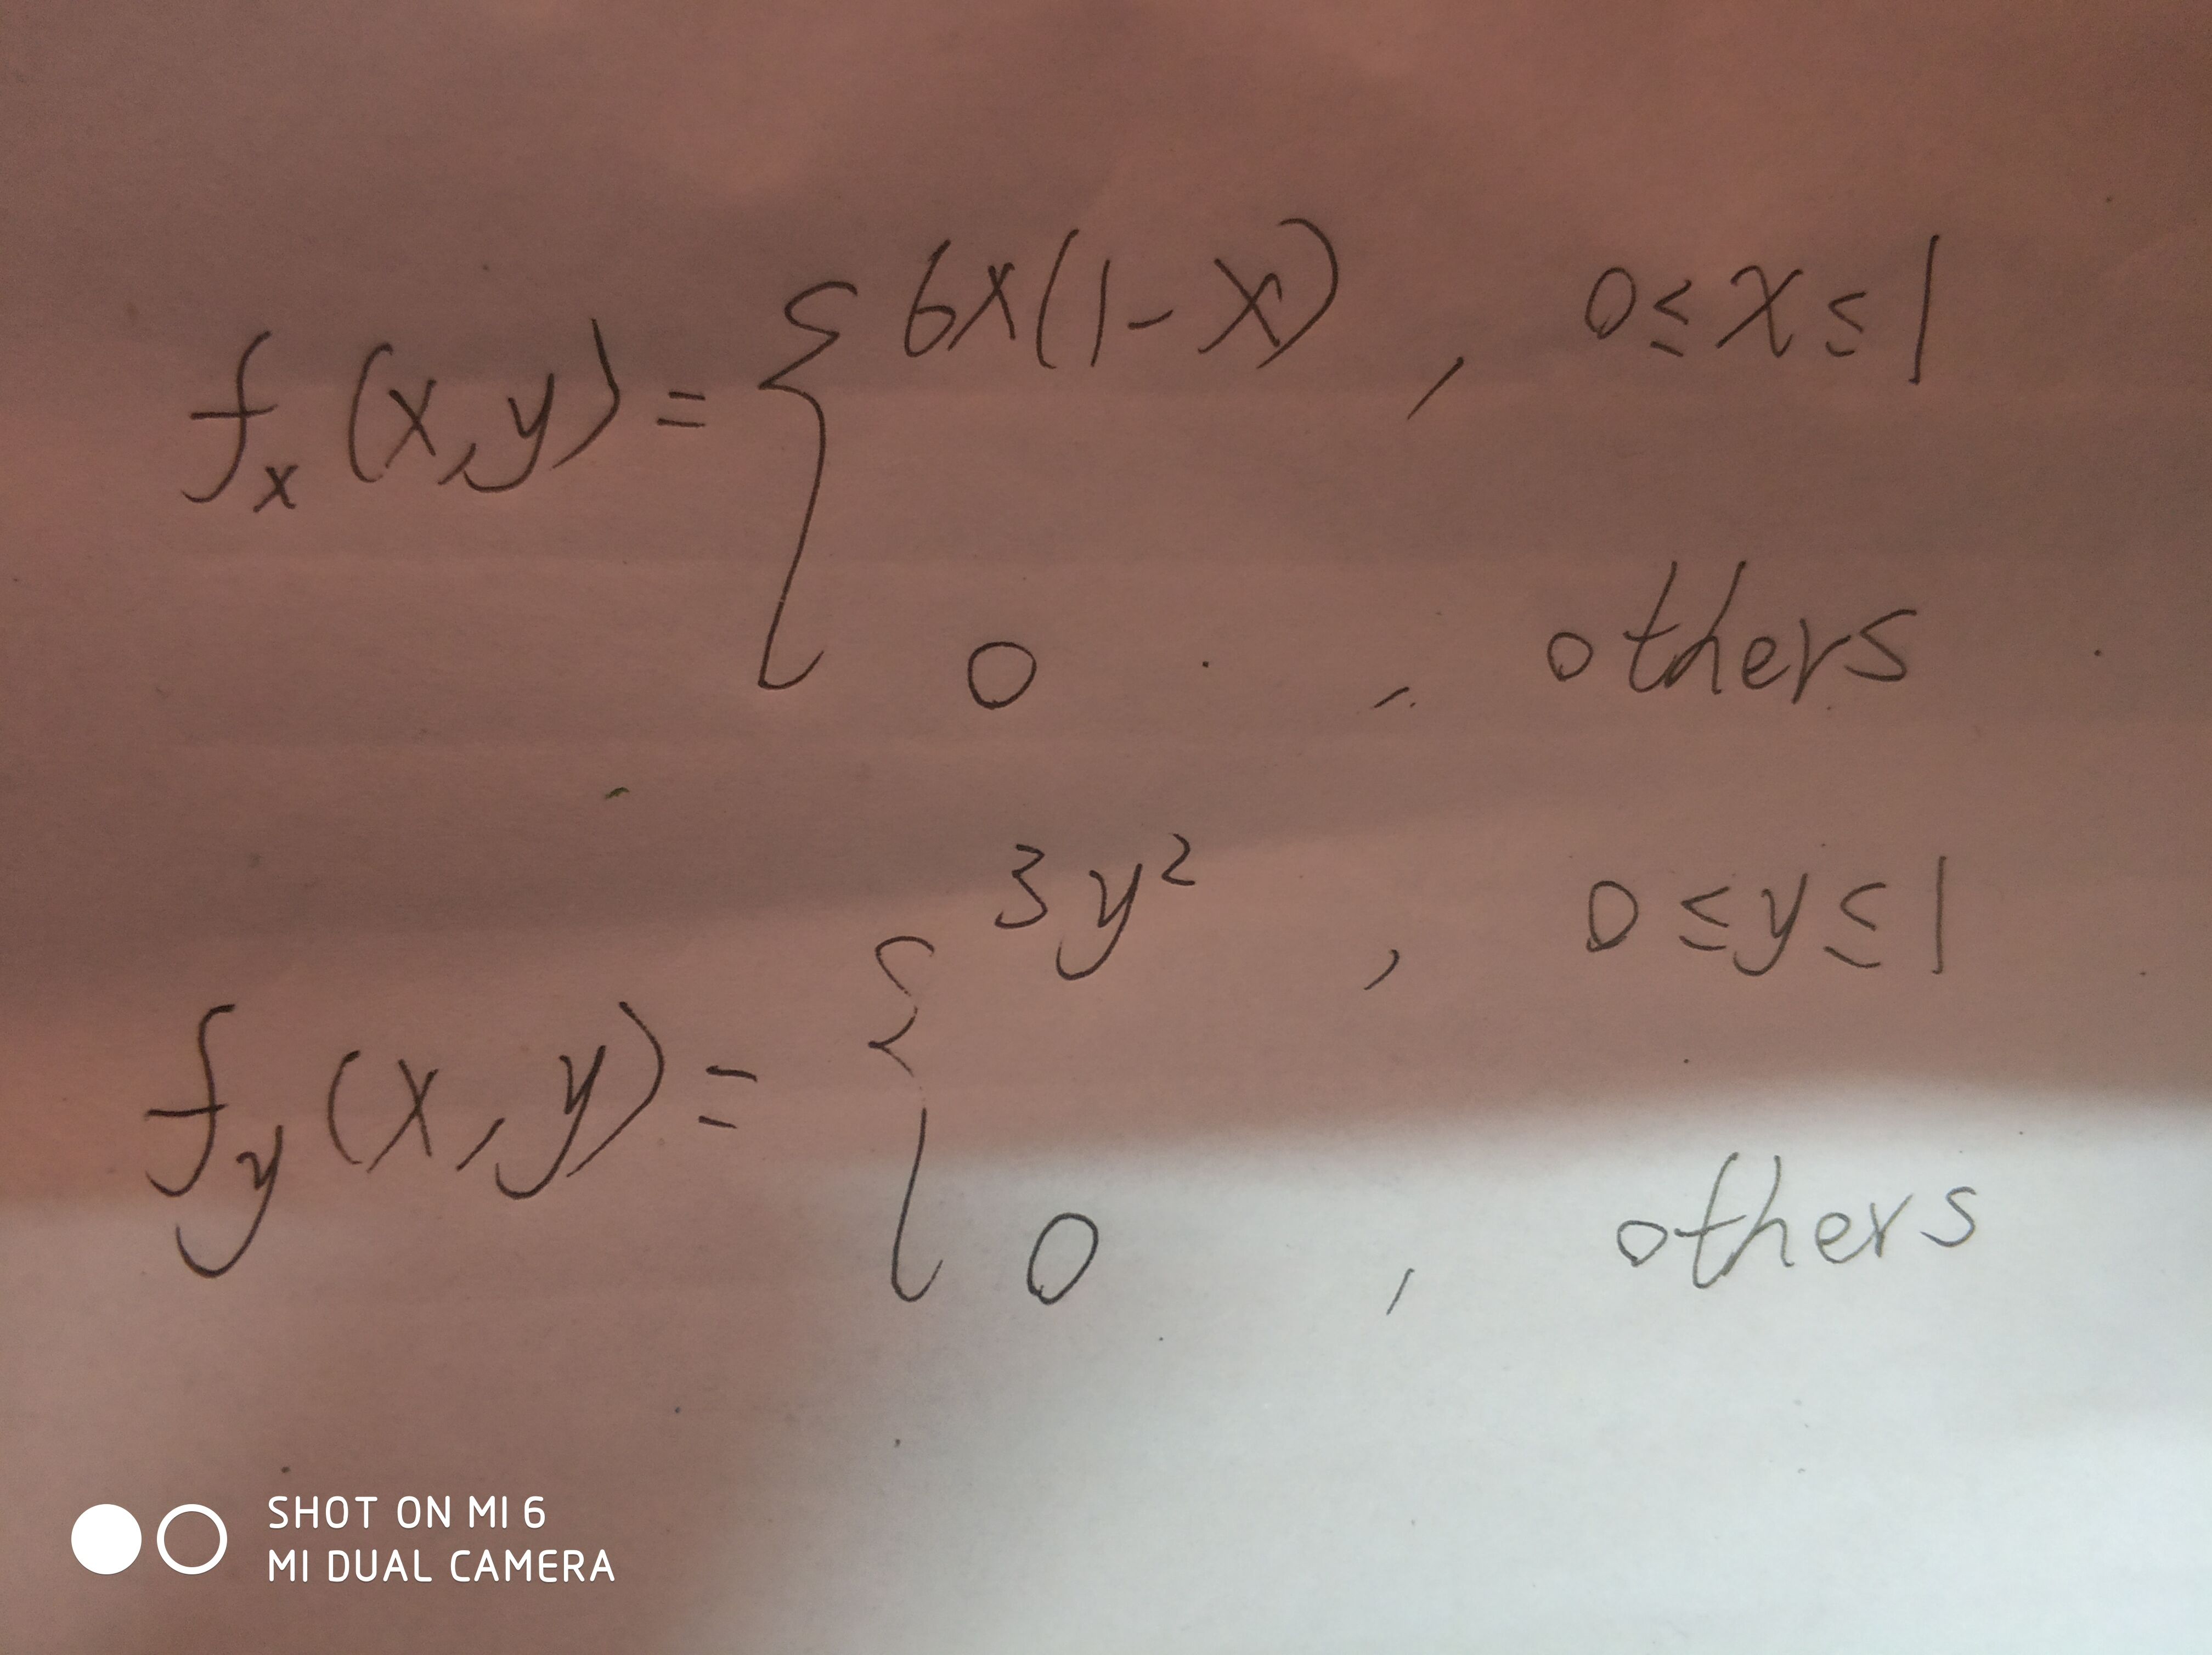 fₓ(x,y)= { 6x(1-x) , 0≤x≤1
0 , others
f_y(x,y)= { 3y² , 0≤y≤1
0 , others
SHOT ON MI 6
MI DUAL CAMERA